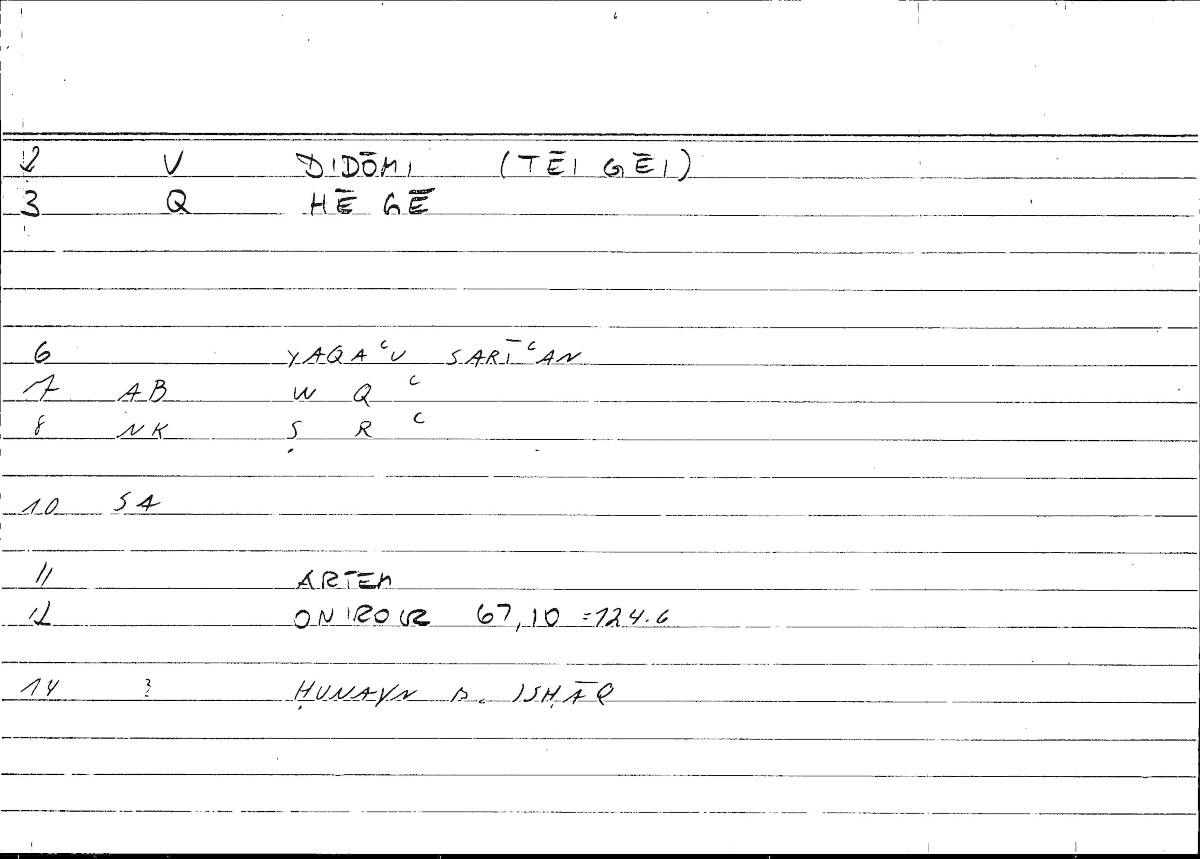 2 V DIDŌMI (TĒI GĒI)
3 Q HĒ GĒ
6 YAQAʿU SARĪʿAN
7 AB W Q ʿ
8 NK Ṣ R ʿ
10 SA
11 ARTEM
12 ONIROCR 67,10 =124.6
14 ? ḤUNAYN B. ISḤĀQ